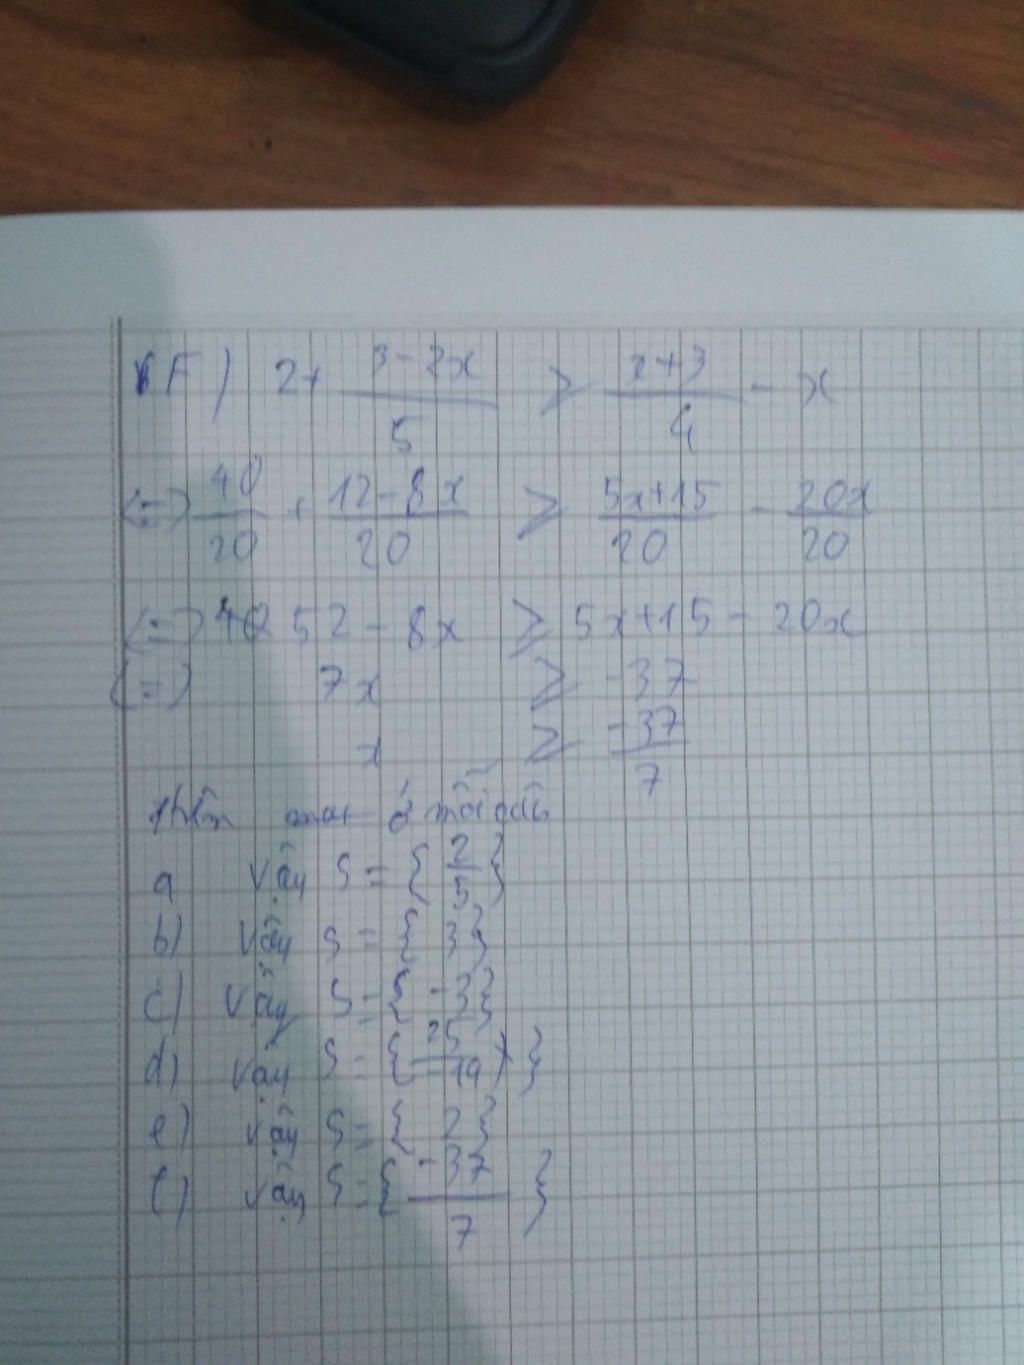 F) 2+ 3-2x/5 > x+3/4 - x
<=> 40/20 + 12-8x/20 ≥ 5x+15/20 - 20x/20
<=> 52-8x ≥ 5x+15-20x
<=> 7x ≥ -37
x ≥ -37/7
thêm ở mỗi câu
a Vậy S = { 2/5 }
b) Vậy S = { 3 }
c) Vậy S = { -3 }
d) Vậy S = { 25/-19 }
e) Vậy S = { 2 }
f) Vậy S = { -37/7 }